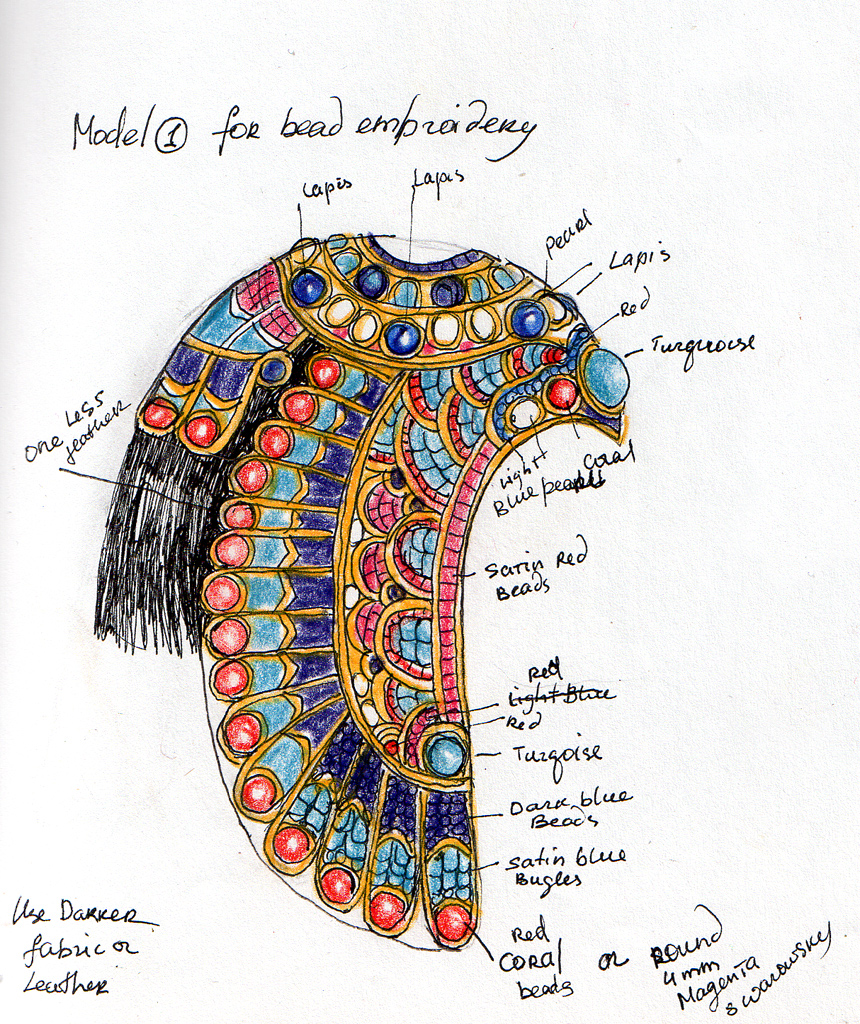 Model ① for bead embroidery
Lapis
Lapis
Pearl
Lapis
Red
Turquoise
One Less
feather
Light
Blue pearls
Coral
Satin Red
Beads
Red
Light Blue
Red
Turgoise
Dark blue
Beads
Satin blue
Bugles
Use Darker
fabric or
Leather
Red
Coral or Round
beads
4mm
Magenta
Swarowsky